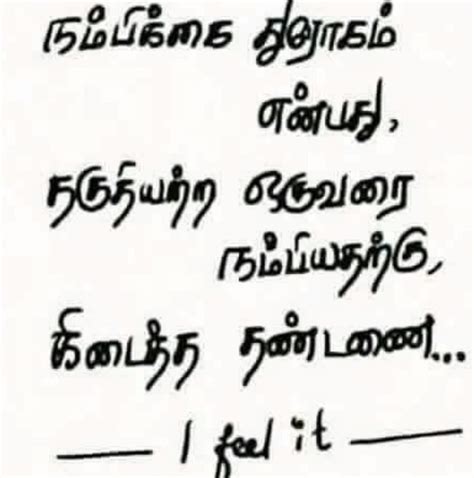 நம்பிக்கை துரோகம்
என்பது,
தகுதியற்ற ஒருவரை
நம்பியதற்கு,
கிடைத்த தண்டணை...
— I feel it —